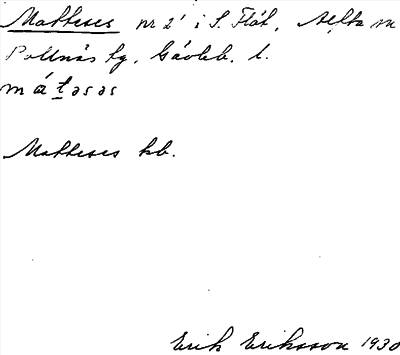 Matteses nr 2' i S. Flät, Alfta sn
Pollnäs tg, Gävleb. l.
mát̲əsəs
Matteses kb.
Erik Eriksson 1930